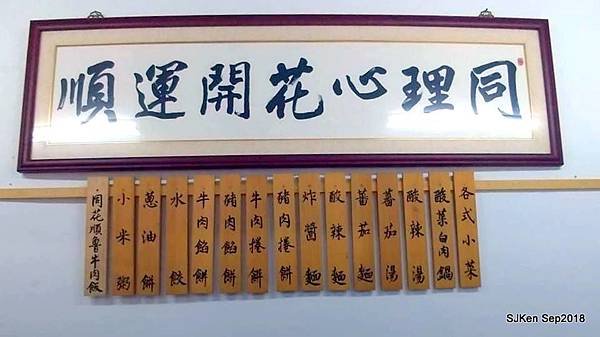 同理心花開運順
各式小菜
酸菜白肉鍋
酸辣湯
蕃茄湯
蕃茄麵
酸辣麵
炸醬麵
豬肉捲餅
牛肉捲餅
豬肉餡餅
牛肉餡餅
水餃
蔥油餅
小米粥
同花順魯牛肉飯
SJKen Sep2018